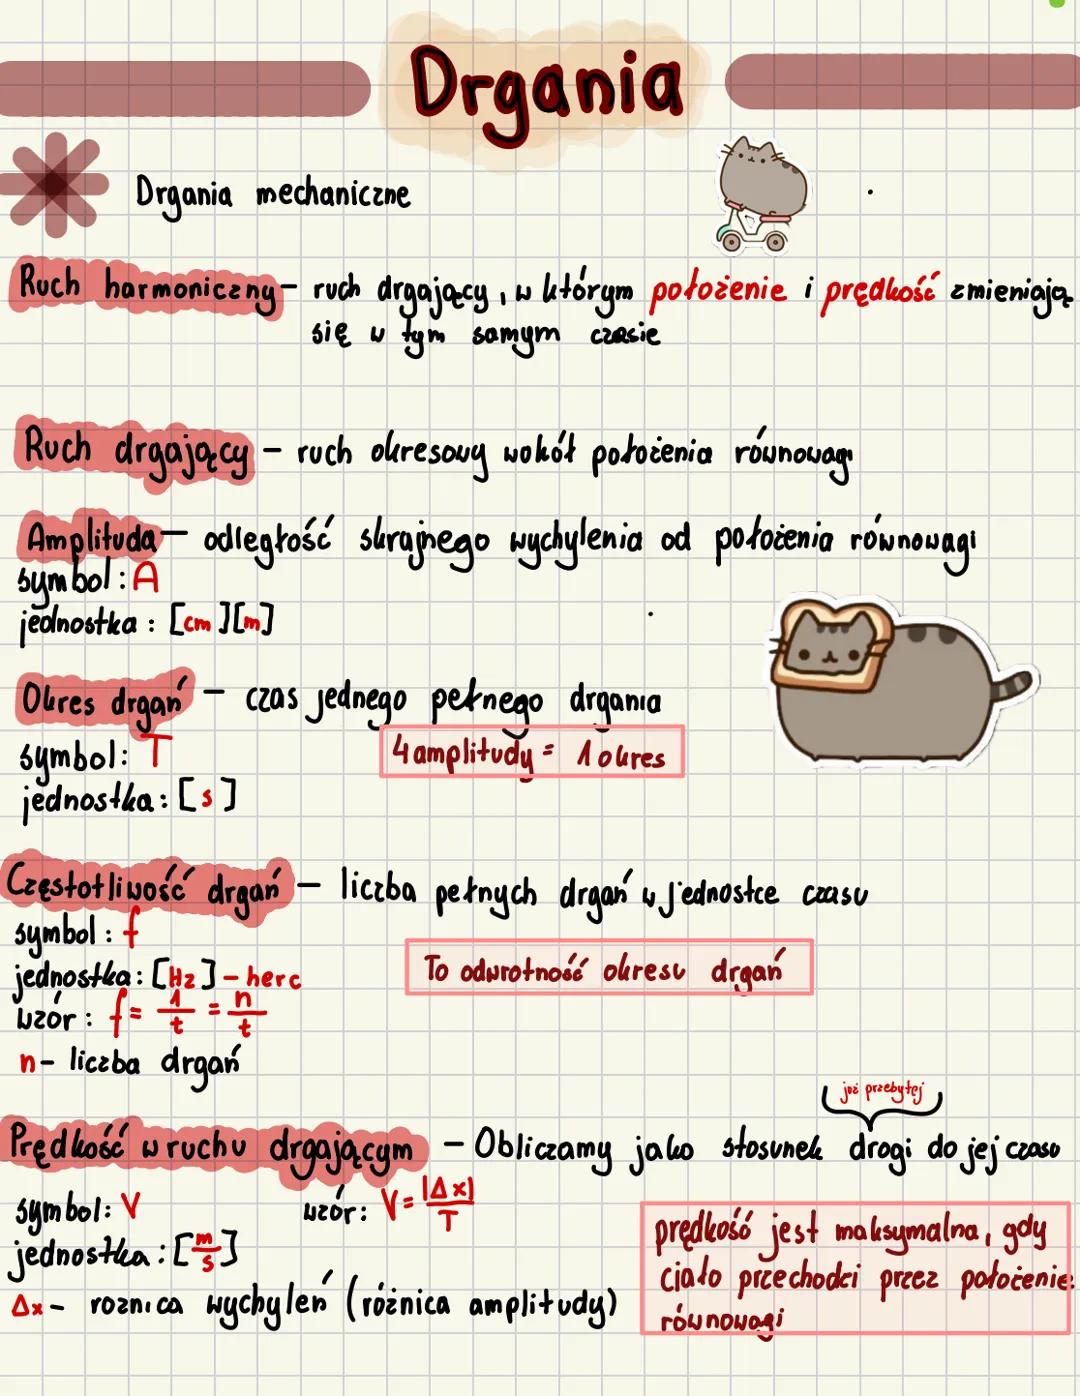 Drgania
Drgania mechaniczne
Ruch harmoniczny - ruch drgający, w którym położenie i prędkość zmieniają
się w tym samym czasie
Ruch drgający - ruch okresowy wokół położenia równowagi
Amplituda - odległość skrajnego wychylenia od położenia równowagi
symbol: A
jednostka: [cm][m]
Okres drgań - czas jednego pełnego drgania
symbol: T
4 amplitudy = 1 okres
jednostka: [s]
Częstotliwość drgań - liczba pełnych drgań w jednostce czasu
symbol: f
jednostka: [Hz] - herc
To odwrotność okresu drgań
wzór: f = 1/t = n/t
n - liczba drgań
już przebytej
Prędkość w ruchu drgającym - Obliczamy jako stosunek drogi do jej czasu
symbol: V wzór: V = |Δx|/T
jednostka: [m/s]
Δx - roznica wychyleń (różnica amplitudy)
prędkość jest maksymalna, gdy
ciało przechodzi przez położenie
równowagi